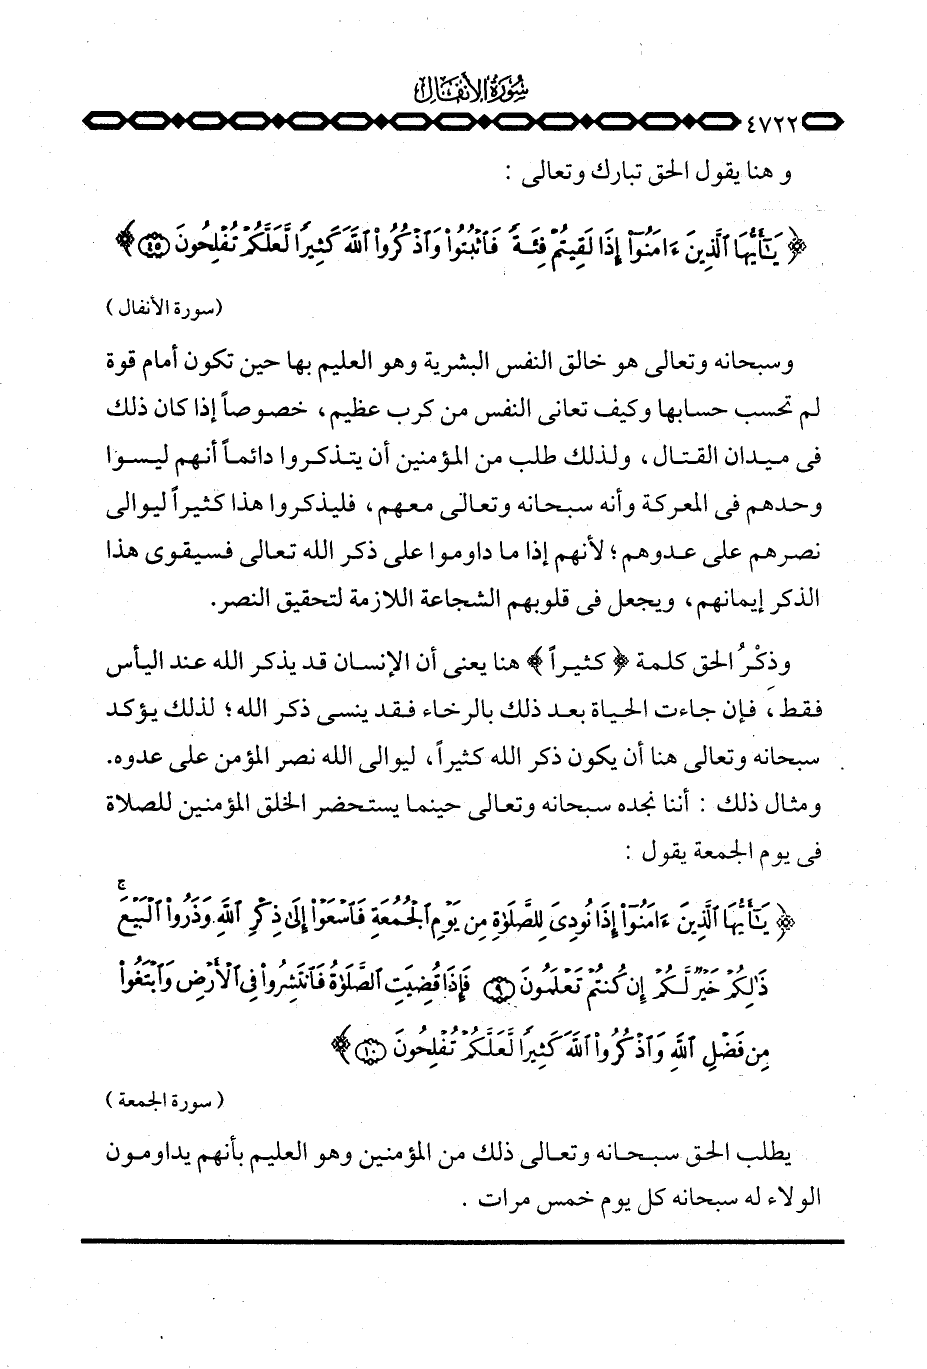 سورة الأنفال
٤٧٢٢
و هنا يقول الحق تبارك وتعالى :
﴿ يَٰٓأَيُّهَا ٱلَّذِينَ ءَامَنُوٓا۟ إِذَا لَقِيتُمْ فِئَةً فَٱثْبُتُوا۟ وَٱذْكُرُوا۟ ٱللَّهَ كَثِيرًا لَّعَلَّكُمْ تُفْلِحُونَ ٤٥ ﴾
(سورة الأنفال )
وسبحانه وتعالى هو خالق النفس البشرية وهو العليم بها حين تكون أمام قوة
لم تحسب حسابها وكيف تعانى النفس من كرب عظيم، خصوصاً إذا كان ذلك
فى ميدان القتال، ولذلك طلب من المؤمنين أن يتذكروا دائماً أنهم ليسوا
وحدهم فى المعركة وأنه سبحانه وتعالى معهم، فليذكروا هذا كثيراً ليوالى
نصرهم على عدوهم؛ لأنهم إذا ما داوموا على ذكر الله تعالى فسيقوى هذا
الذكر إيمانهم، ويجعل فى قلوبهم الشجاعة اللازمة لتحقيق النصر.
وذكْرُ الحق كلمة ﴿ كثيراً ﴾ هنا يعنى أن الإنسان قد يذكر الله عند اليأس
فقط، فإن جاءت الحياة بعد ذلك بالرخاء فقد ينسى ذكر الله؛ لذلك يؤكد
سبحانه وتعالى هنا أن يكون ذكر الله كثيراً، ليوالى الله نصر المؤمن على عدوه.
ومثال ذلك : أننا نجده سبحانه وتعالى حينما يستحضر الخلق المؤمنين للصلاة
فى يوم الجمعة يقول :
﴿ يَٰٓأَيُّهَا ٱلَّذِينَ ءَامَنُوٓا۟ إِذَا نُودِىَ لِلصَّلَوٰةِ مِن يَوْمِ ٱلْجُمُعَةِ فَٱسْعَوْا۟ إِلَىٰ ذِكْرِ ٱللَّهِ وَذَرُوا۟ ٱلْبَيْعَ ۚ
ذَٰلِكُمْ خَيْرٌ لَّكُمْ إِن كُنتُمْ تَعْلَمُونَ ٩ فَإِذَا قُضِيَتِ ٱلصَّلَوٰةُ فَٱنتَشِرُوا۟ فِى ٱلْأَرْضِ وَٱبْتَغُوا۟
مِن فَضْلِ ٱللَّهِ وَٱذْكُرُوا۟ ٱللَّهَ كَثِيرًا لَّعَلَّكُمْ تُفْلِحُونَ ١٠ ﴾
( سورة الجمعة )
يطلب الحق سبحانه وتعالى ذلك من المؤمنين وهو العليم بأنهم يداومون
الولاء له سبحانه كل يوم خمس مرات .